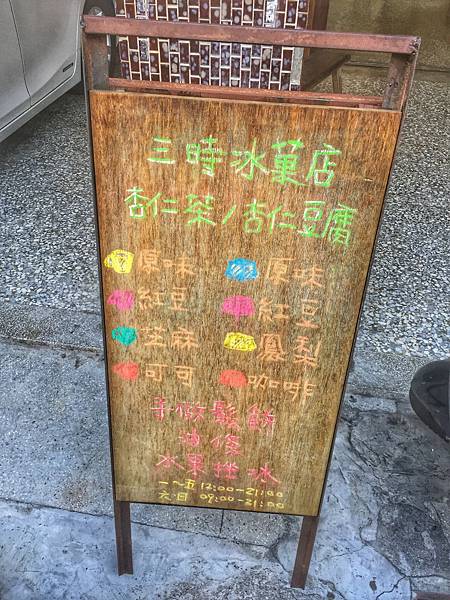 三時冰菓店
杏仁茶/杏仁豆腐
原味 原味
紅豆 紅豆
芝麻 鳳梨
可可 咖啡
手做鬆餅
油條
水果挫冰
一~五 12:00-21:00
六.日 09:00-21:00